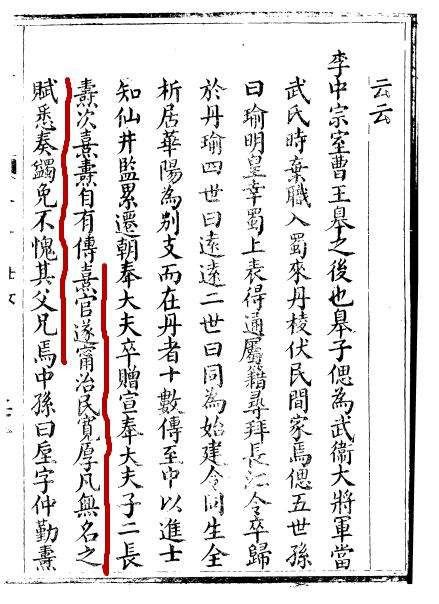 云云
李中宗室曹王皋之後也皋子偲為武衛大將軍當
武氏時棄職入蜀來丹棱伏民間家焉偲五世孫
曰瑜明皇幸蜀上表得通屬籍尋拜長江令卒歸
於丹瑜四世曰遠遠二世曰同為始建令同生全
析居華陽為別支而在丹者十數傳至中以進士
知仙井監累遷朝奉大夫卒贈宣奉大夫子二長
燾次熹燾自有傳熹官遂寧治民寬厚凡無名之
賦悉奏蠲免不愧其父兄焉中孫曰垕字仲勤燾